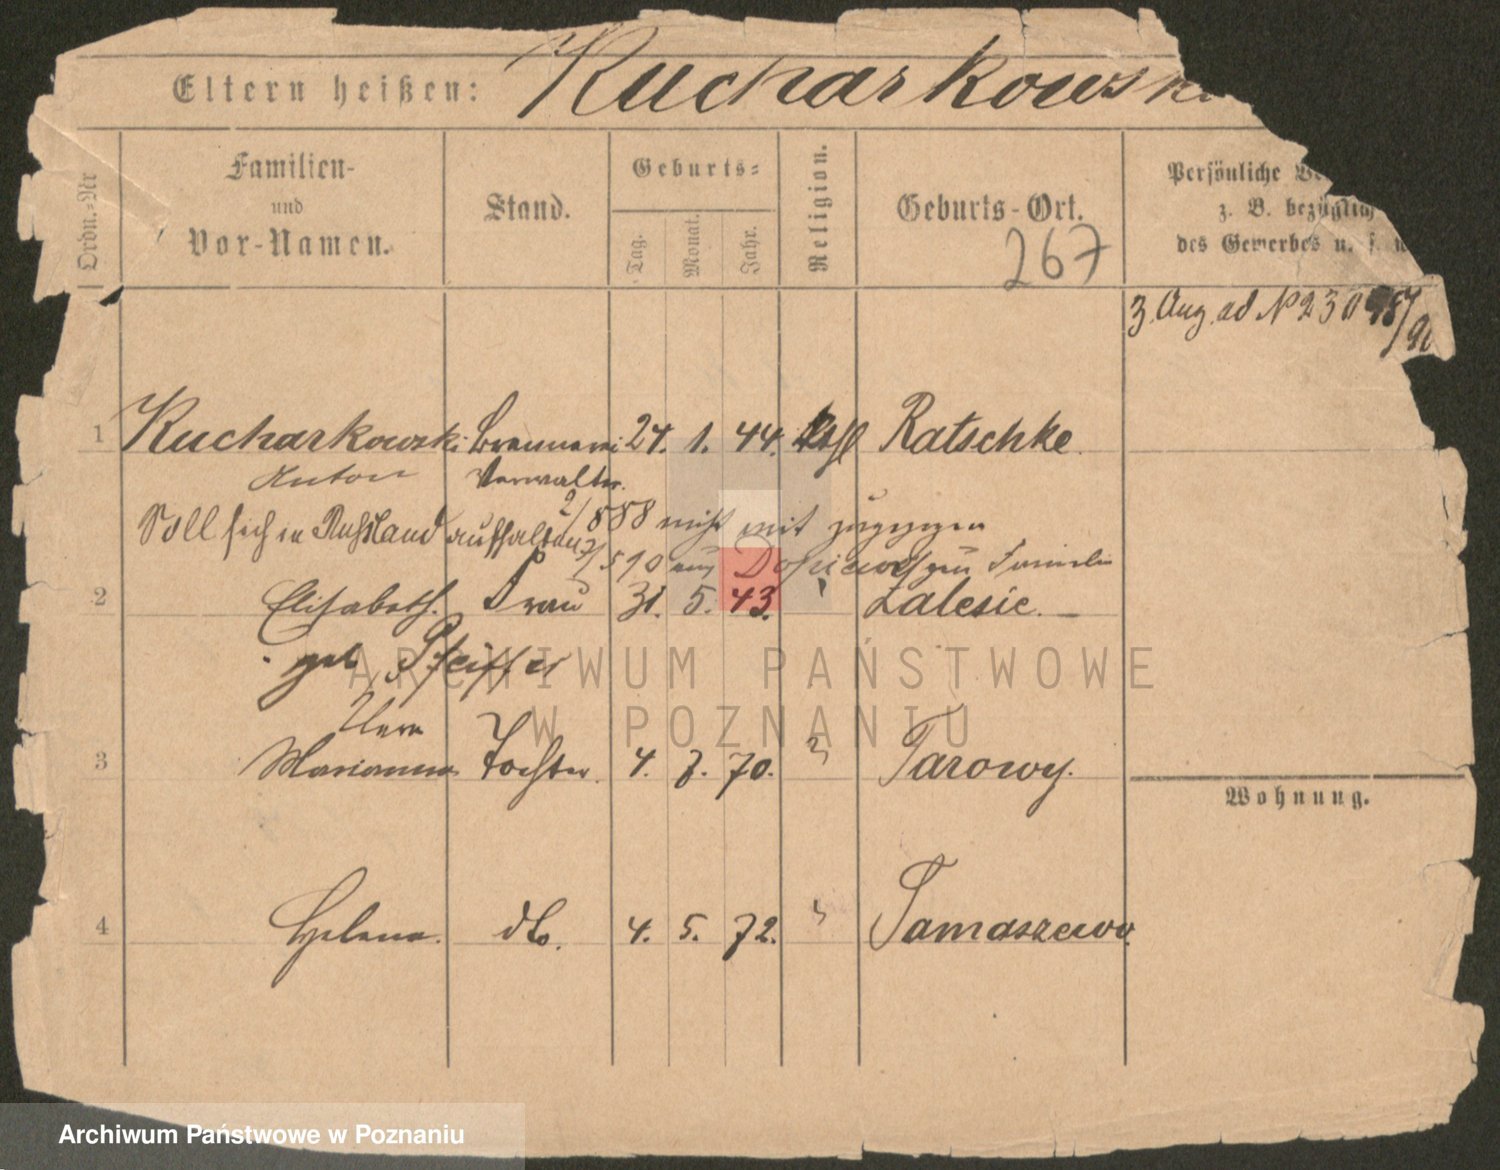 Eltern heißen: Kucharkowski
Ordn.-Nr
Familien-
und
Vor-Namen.
Stand.
Geburts=
Tag.
Monat.
Jahr.
Religion.
Geburts-Ort.
267
Persönliche
z. B. bezüglich
des Gewerbes u. s.
3 Aug ad No 230
1 Kucharkowski Brennerei 24. 1. 44. Kthl Ratschke
Anton Verwalter.
Soll sich in Rußland aufhalten 2/888 nicht mit zugezogen
zu Familie
2 Elisabeth. Frau 31. 5. 43. Zalesie.
geb Pfeiffer
3 Marianna Tochter. 4. 7. 70. Tarowy.
Wohnung.
4 Helena. do. 4. 5. 72. Tamaszewo
ARCHIWUM PAŃSTWOWE
W POZNANIU
Archiwum Państwowe w Poznaniu